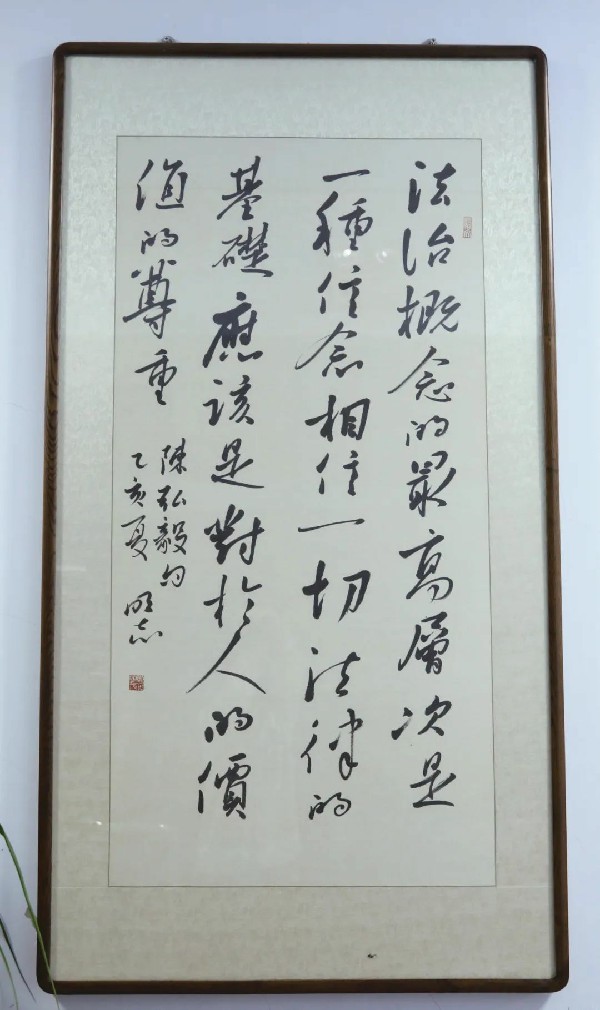 法治概念的最高層次是
一種信念相信一切法律的
基礎應該是對於人的價
值的尊重
陳弘毅句
乙亥夏 明志